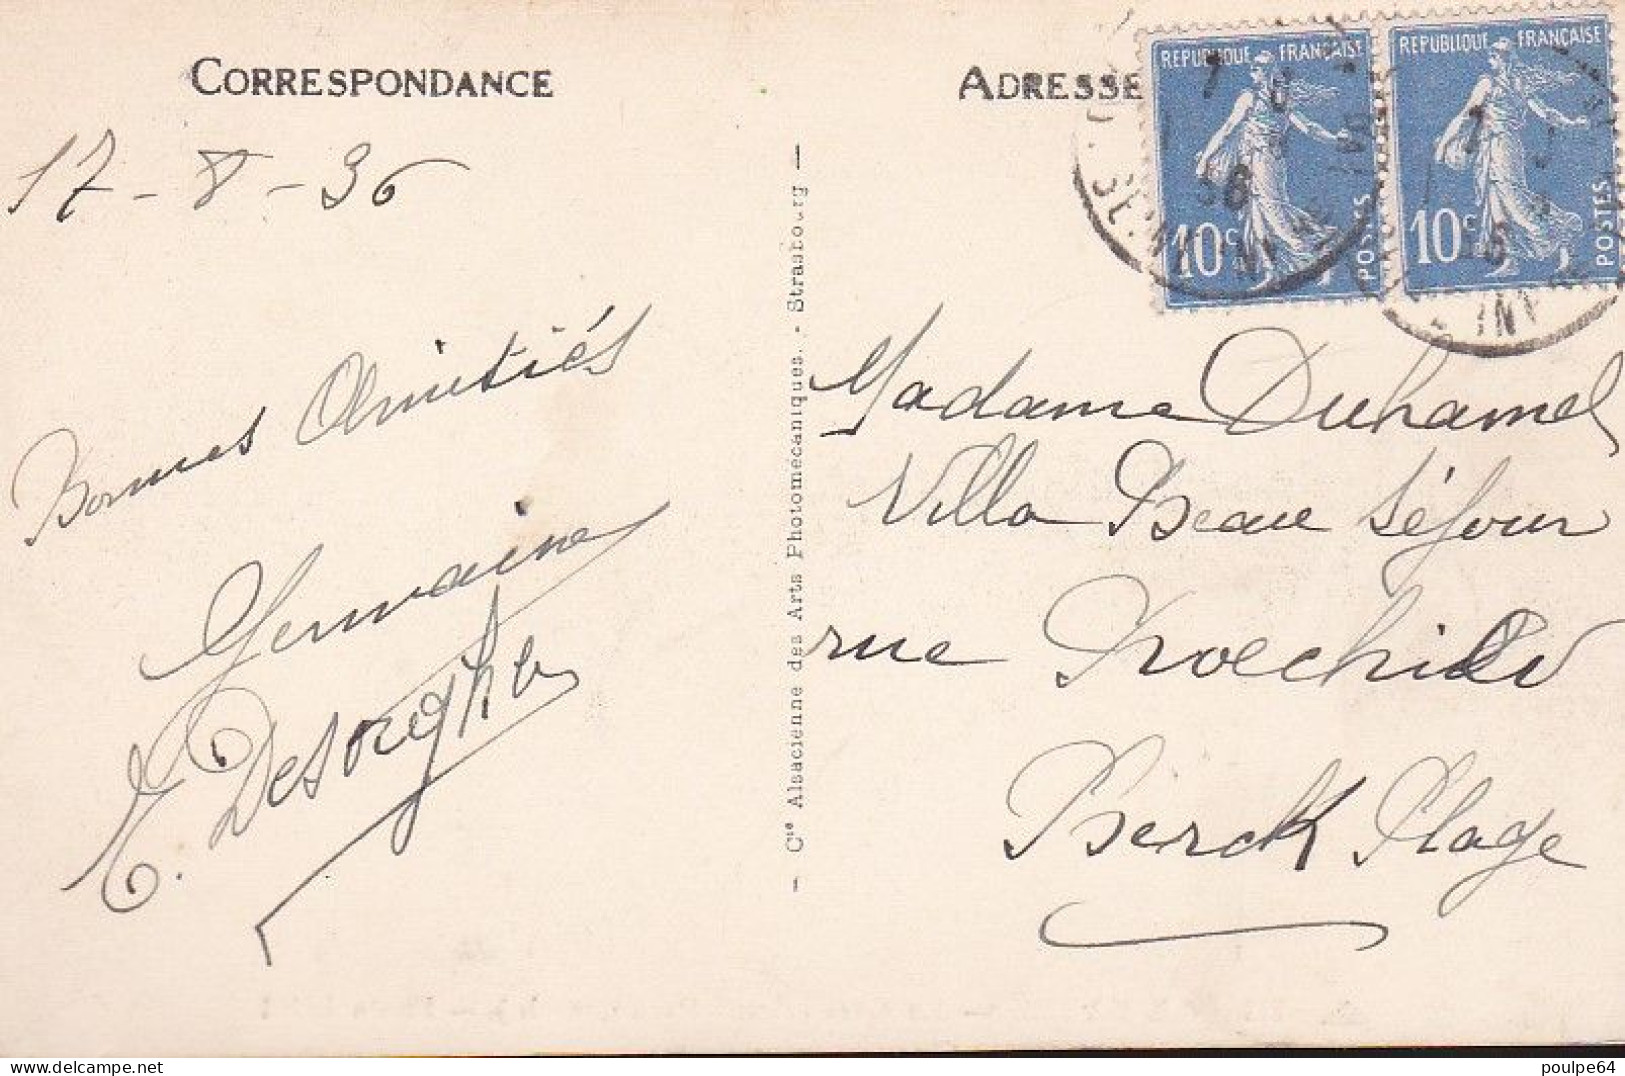 CORRESPONDANCE
17-8-36
Bonnes Amitiés
Germaine
E. Desorgher
- Cie Alsacienne des Arts Photomecaniques. - Strasbourg -
ADRESSE
REPUBLIQUE FRANÇAISE
10c POSTES
REPUBLIQUE FRANÇAISE
10c POSTES
Madame Duhamel
Villa Beau Séjour
rue
Berck Plage
poulpe64